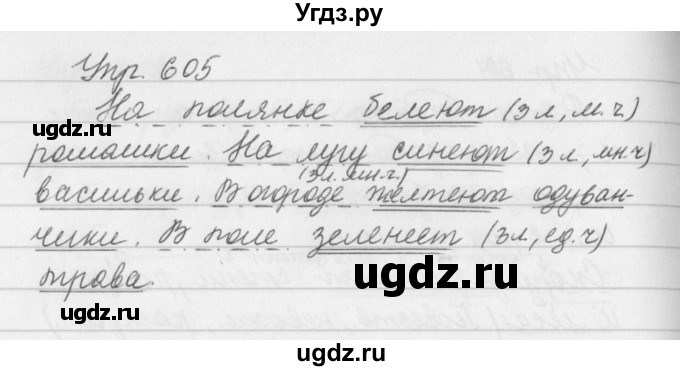 Угдз.ру
Упр. 605
На полянке белеют (3 л, м.ч)
ромашки. На лугу синеют (3 л, мн.ч)
(3л. мн.ч.)
васильки. В огороде желтеют одуван-
чики. В поле зеленеет (3 л, ед.ч)
трава.
ugdz.ru
ugdz.ru
ugdz.ru
ugdz.ru
ugdz.ru
ugdz.ru
ugdz.ru